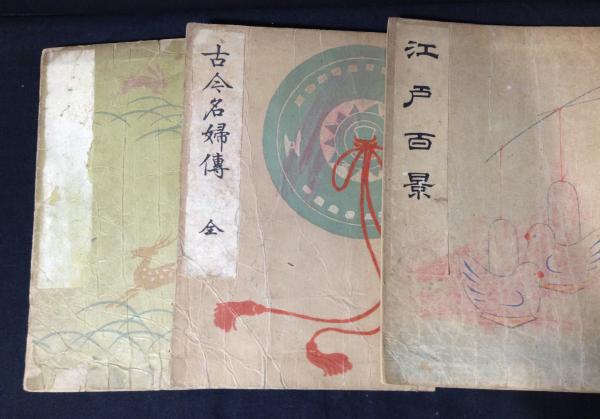 古今名婦傳
全
江戸百景